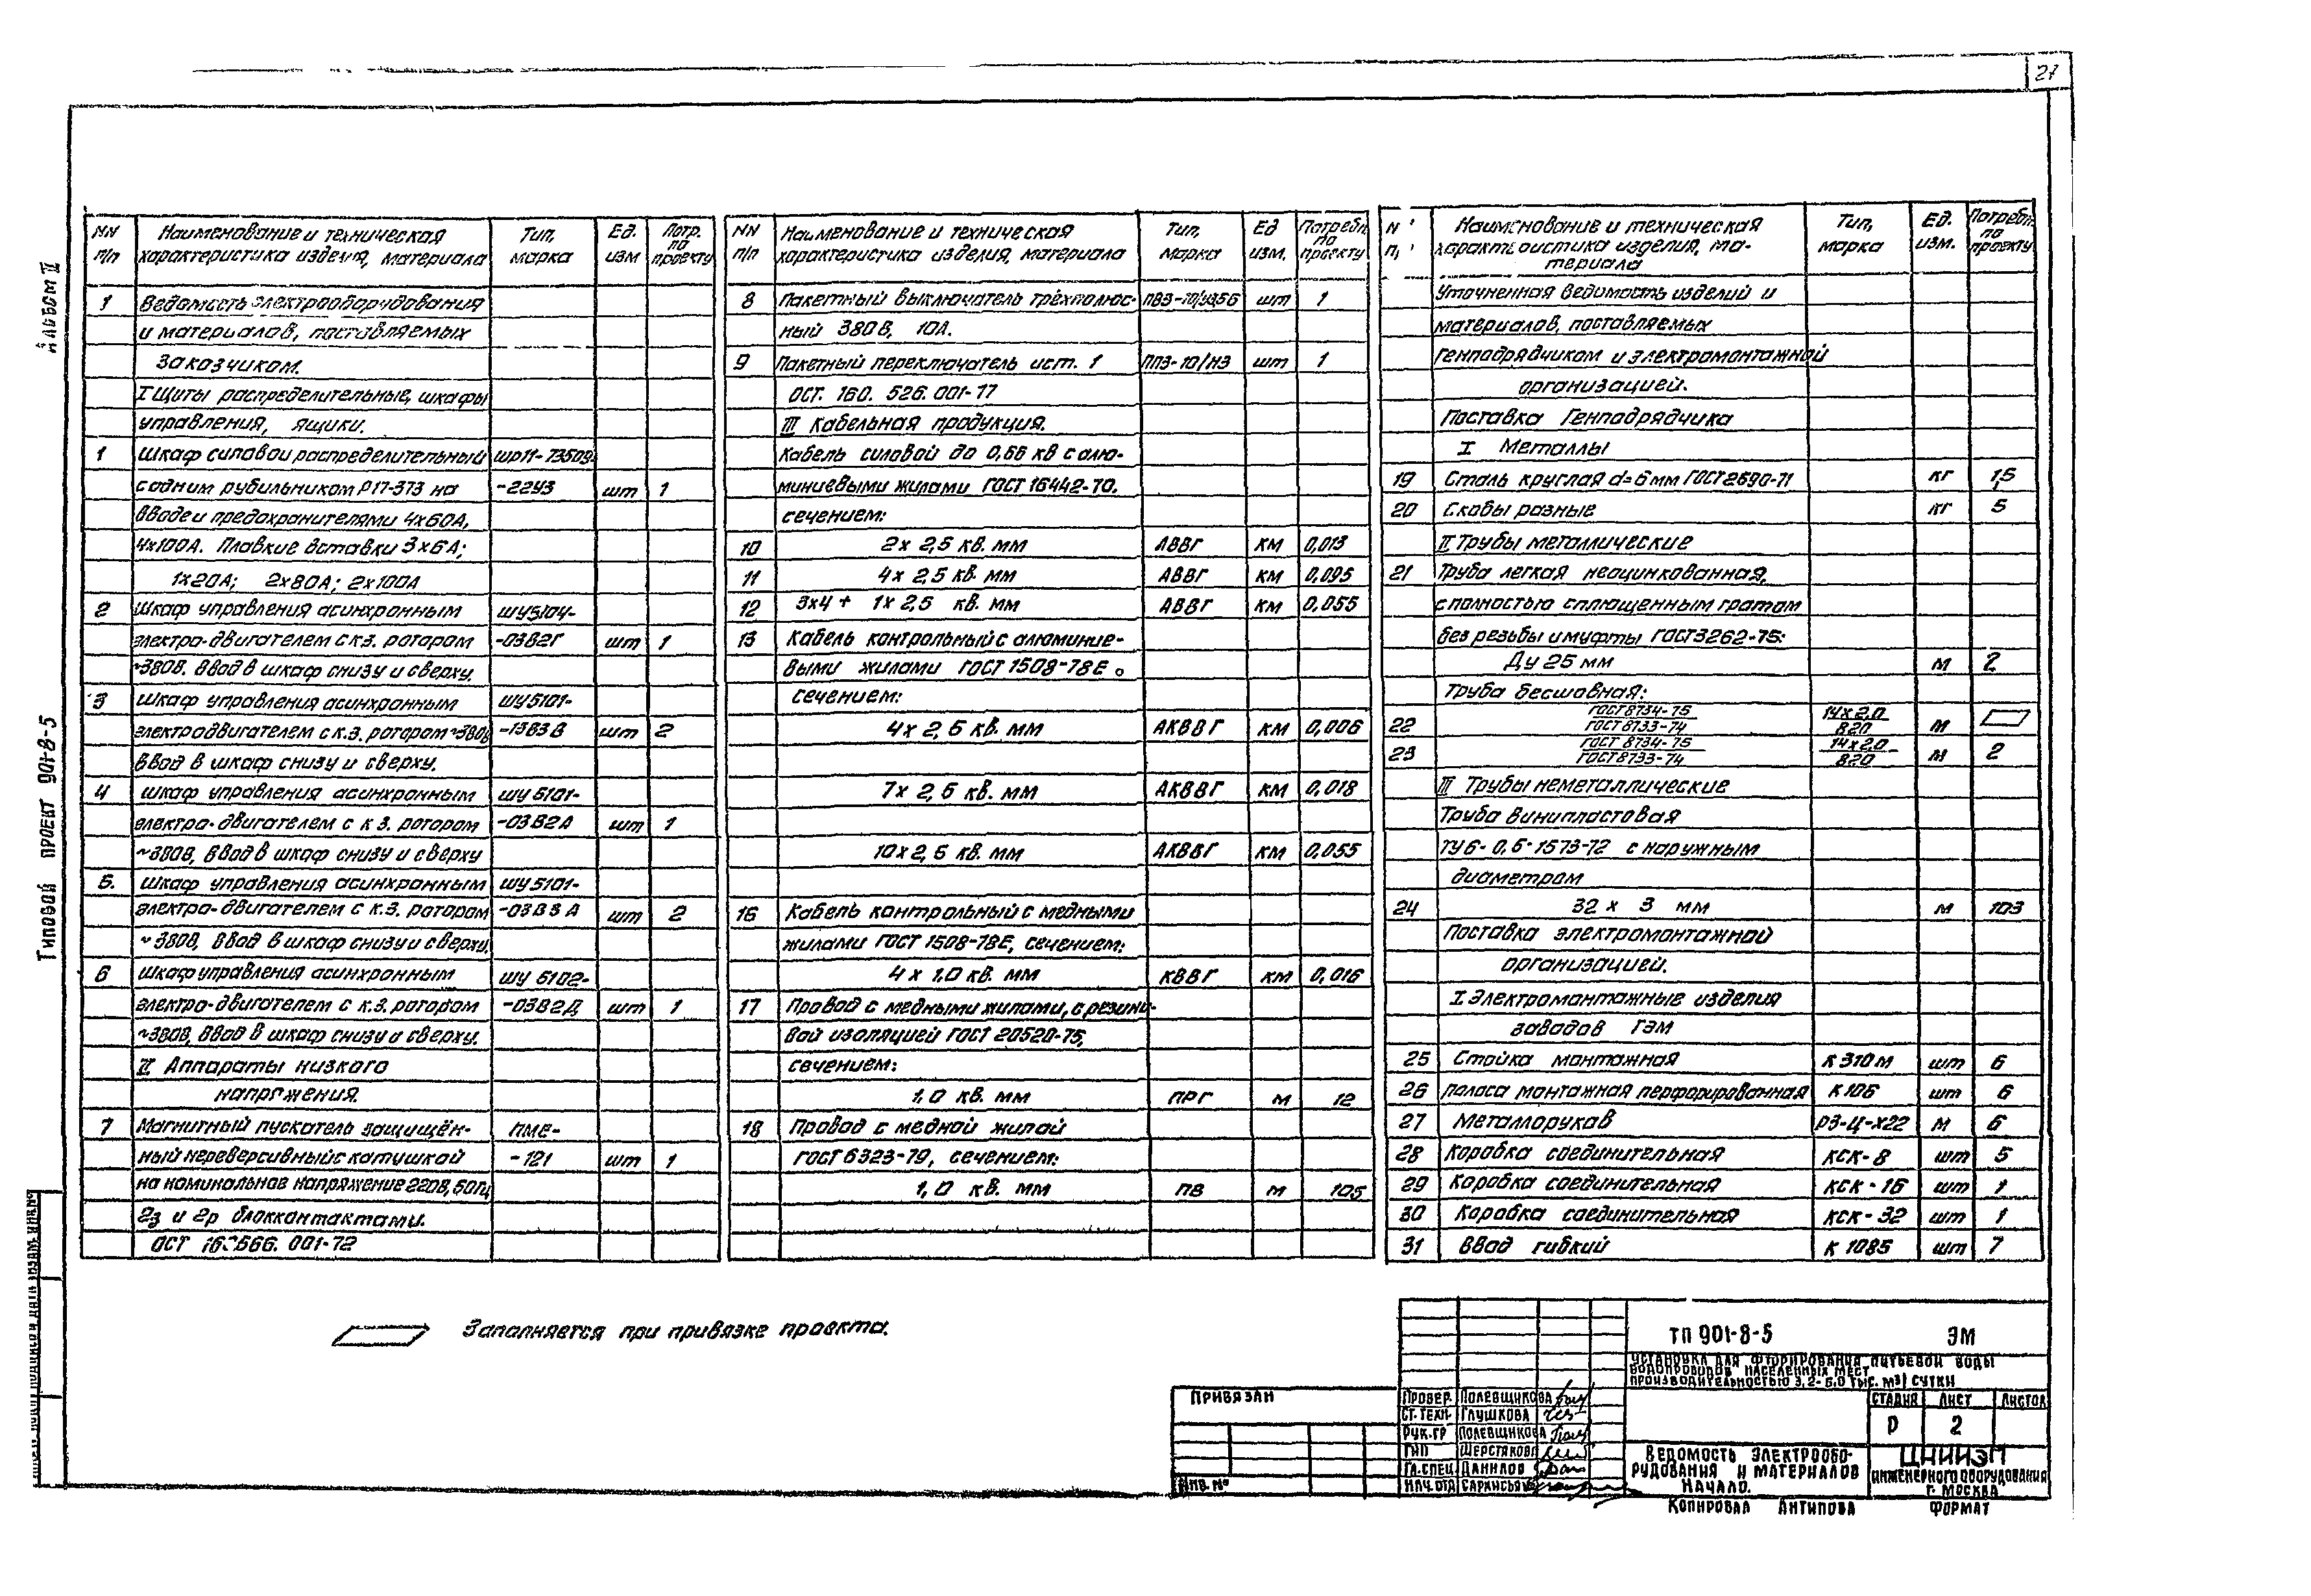 27
Альбом II
Типовой проект 901-8-5
NN п/п | Наименование и техническая характеристика изделия, материала | Тип, марка | Ед. изм | Потр. по проекту
1 Ведомость электрооборудования
и материалов, поставляемых
заказчиком.
I Щиты распределительные, шкафы
управления, ящики.
1 Шкаф силовой распределительный ШР11-73509-
с одним рубильником Р17-373 на -22У3 шт 1
вводе и предохранителями 4х60А,
4х100А. Плавкие вставки 3х6А;
1х20А; 2х80А; 2х100А
2 Шкаф управления асинхронным ШУ5104-
электро-двигателем с к.з. ротором -03В2Г шт 1
~380В. Ввод в шкаф снизу и сверху.
3 Шкаф управления асинхронным ШУ5101-
электродвигателем с к.з. ротором ~380В шт 2
Ввод в шкаф снизу и сверху.
4 Шкаф управления асинхронным ШУ5101-
электро-двигателем с к.з. ротором -03В2А шт 1
~380В, Ввод в шкаф снизу и сверху
5. Шкаф управления асинхронным ШУ5101-
электро-двигателем с к.з. ротором -03В3А шт 2
~380В, Ввод в шкаф снизу и сверху.
6 Шкаф управления асинхронным ШУ 5102-
электро-двигателем с к.з. ротором -03В2Д шт 1
~380В, Ввод в шкаф снизу и сверху.
II Аппараты низкого
напряжения.
7 Магнитный пускатель защищён- ПМЕ-
ный нереверсивный с катушкой -121 шт 1
на номинальное напряжение 220В, 50Гц
2з и 2р блокконтактами.
ОСТ 001-72
NN п/п | Наименование и техническая характеристика изделия, материала | Тип, марка | Ед изм. | Потребн. по проекту
8 Пакетный выключатель трёхполюс- шт 1
ный 380В, 10А.
9 Пакетный переключатель исп. 1 ПП3-10/Н3 шт 1
ОСТ. 160. 526. 001-77
III Кабельная продукция.
Кабель силовой до 0,66 кв с алю-
миниевыми жилами ГОСТ 16442-70.
сечением:
10 2х 2,5 кв. мм АВВГ км 0,013
11 4х 2,5 кв. мм АВВГ км 0,095
12 3х4 + 1х 2,5 кв. мм АВВГ км 0,055
13 Кабель контрольный с алюминие-
выми жилами ГОСТ 1508-78Е.
сечением:
4х 2,5 кв. мм АКВВГ км 0,006
7х 2,5 кв. мм АКВВГ км 0,018
10х2,5 кв. мм АКВВГ км 0,055
16 Кабель контрольный с медными
жилами ГОСТ 1508-78Е, сечением:
4 х 1,0 кв. мм КВВГ км 0,016
17 Провод с медными жилами, с резино-
вой изоляцией ГОСТ 20520-75,
сечением:
1,0 кв. мм ПРГ м 12
18 Провод с медной жилой
ГОСТ 6323-79, сечением:
1,0 кв. мм ПВ м 105
N п, | Наименование и техническая характеристика изделия, материала | Тип, марка | Ед. изм. | Потребн. по проекту
Уточненная ведомость изделий и
материалов, поставляемых
генподрядчиком и электромонтажной
организацией.
Поставка Генподрядчика
I Металлы
19 Сталь круглая d=6мм ГОСТ 2590-71 кг 1,5
20 Скобы разные кг 5
II Трубы металлические
21 Труба легкая неоцинкованная,
с полностью сплющенным гратом
без резьбы и муфты ГОСТ 3262-75:
Ду 25 мм м 2
Труба бесшовная:
22 ГОСТ 8734-75 / ГОСТ 8733-74 14х2,0 / В20 м
23 ГОСТ 8734-75 / ГОСТ 8733-74 14х2,0 / В20 м 2
III Трубы неметаллические
Труба винипластовая
ТУ6-0,5-1573-72 с наружным
диаметром
24 32 х 3 мм м 103
Поставка электромонтажной
организацией.
I Электромонтажные изделия
заводов ГЭМ
25 Стойка монтажная К 310м шт 6
26 Полоса монтажная перфорированная К106 шт 6
27 Металлорукав РЗ-Ц-Х22 м 6
28 Коробка соединительная КСК-8 шт 5
29 Коробка соединительная КСК-16 шт 1
30 Коробка соединительная КСК-32 шт 1
31 Ввод гибкий К 1085 шт 7
Заполняется при привязке проекта.
Привязан
Инв. №
Провер. Полевщикова
Ст.техн. Глушкова
Рук.гр Полевщикова
ГИП Шерстякова
Гл.спец Данилов
Нач.отд
ТП 901-8-5 ЭМ
Установка для фторирования питьевой воды
водопроводов населенных мест
производительностью 3,2-5,0 тыс. м3/сутки
Стадия Лист Листов
Р 2
Ведомость электрообо-
рудования и материалов
Начало.
ЦНИИЭП
инженерного оборудования
г. Москва
Копировал Антипова Формат